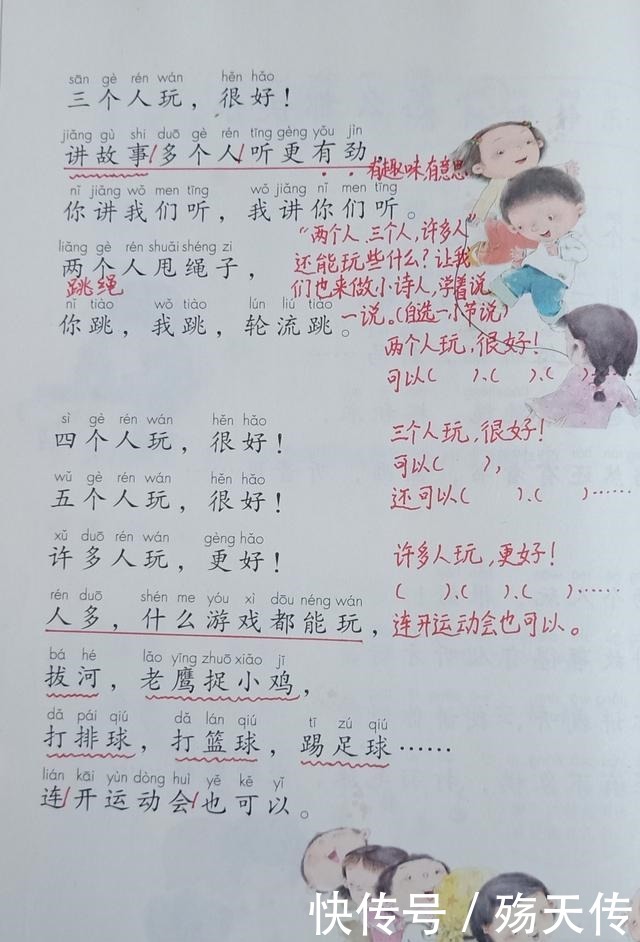 sān gè rén wán hěn hǎo
三个人玩，很好！
jiǎng gù shi duō gè rén tīng gèng yǒu jìn
讲故事/多个人/听更有劲，
有趣味，有意思
nǐ jiǎng wǒ men tīng wǒ jiǎng nǐ men tīng
你讲我们听，我讲你们听。
liǎng gè rén shuǎi shéng zi
两个人甩绳子，
跳绳
nǐ tiào wǒ tiào lún liú tiào
你跳，我跳，轮流跳。
“两个人、三个人，许多人”
还能玩些什么？让我
们也来做小诗人，学着说
一说。（自选一小节说）
两个人玩，很好！
可以（ ）、（ ）、（ ）……
sì gè rén wán hěn hǎo
四个人玩，很好！
wǔ gè rén wán hěn hǎo
五个人玩，很好！
xǔ duō rén wán gèng hǎo
许多人玩，更好！
三个人玩，很好！
可以（ ），
还可以（ ）、（ ）……
许多人玩，更好！
（ ）、（ ）、（ ）……
连开运动会也可以。
rén duō shén me yóu xì dōu néng wán
人多，什么游戏都能玩，
bá hé lǎo yīng zhuō xiǎo jī
拔河，老鹰捉小鸡，
dǎ pái qiú dǎ lán qiú tī zú qiú
打排球，打篮球，踢足球……
lián kāi yùn dòng huì yě kě yǐ
连/开运动会/也可以。
快传号／殇天传